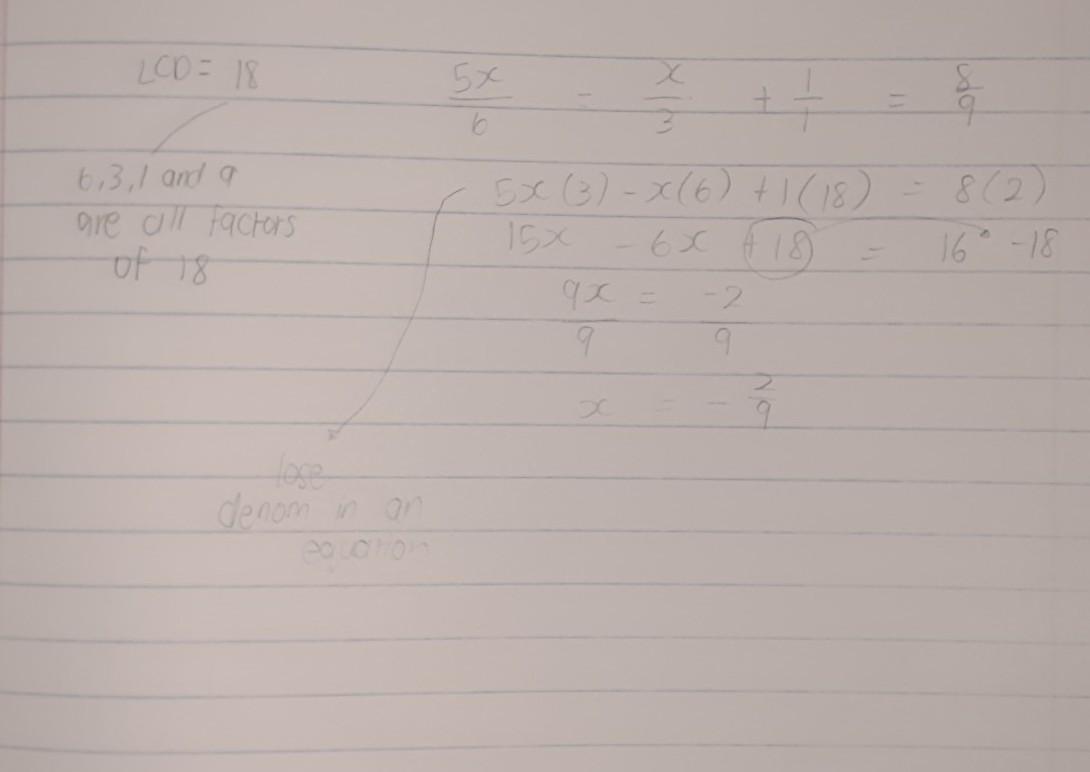 LCD = 18
5x/6 - x/3 + 1/1 = 8/9
6,3,1 and 9
are all factors
of 18
5x(3) - x(6) + 1(18) = 8(2)
15x - 6x + 18 = 16 - 18
9x/9 = -2/9
x = - 2/9
lose
denom in an
equation